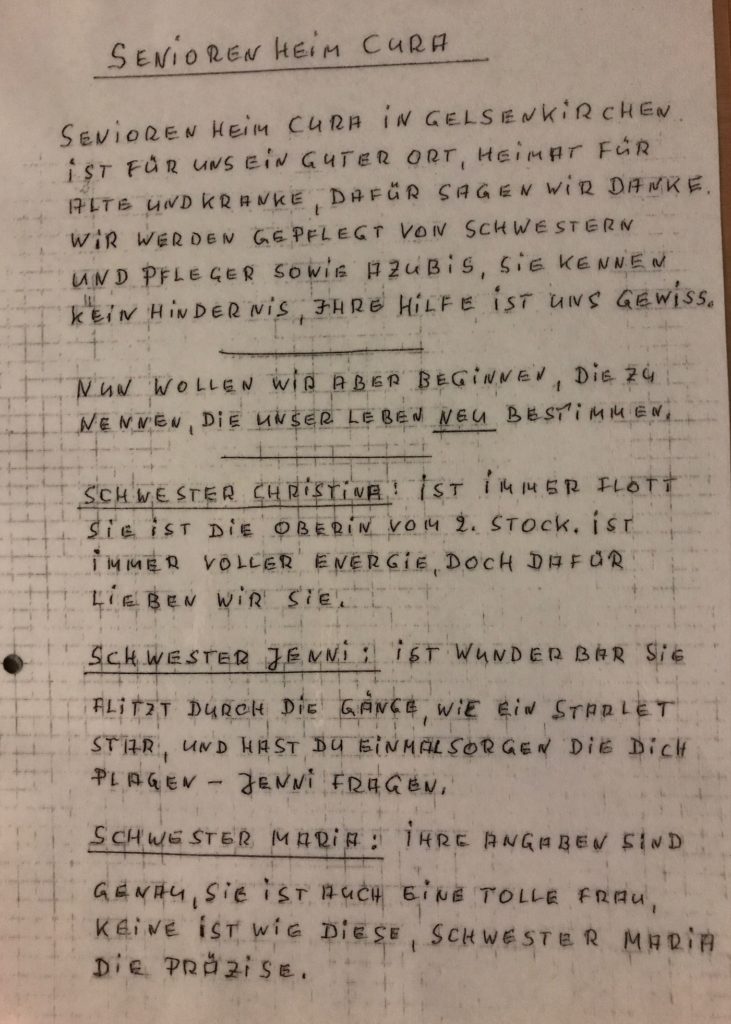 SENIOREN HEIM CURA
SENIOREN HEIM CURA IN GELSENKIRCHEN.
IST FÜR UNS EIN GUTER ORT, HEIMAT FÜR
ALTE UND KRANKE, DAFÜR SAGEN WIR DANKE.
WIR WERDEN GEPFLEGT VON SCHWESTERN
UND PFLEGER SOWIE AZUBIS, SIE KENNEN
KEIN HINDERNIS, IHRE HILFE IST UNS GEWISS.
NUN WOLLEN WIR ABER BEGINNEN, DIE ZU
NENNEN, DIE UNSER LEBEN NEU BESTIMMEN.
SCHWESTER CHRISTINA: IST IMMER FLOTT
SIE IST DIE OBERIN VOM 2. STOCK. IST
IMMER VOLLER ENERGIE, DOCH DAFÜR
LIEBEN WIR SIE.
SCHWESTER JENNI: IST WUNDERBAR SIE
FLITZT DURCH DIE GÄNGE, WIE EIN STARLET
STAR, UND HAST DU EINMAL SORGEN DIE DICH
PLAGEN – JENNI FRAGEN.
SCHWESTER MARIA: IHRE ANGABEN SIND
GENAU, SIE IST AUCH EINE TOLLE FRAU,
KEINE IST WIE DIESE, SCHWESTER MARIA
DIE PRÄZISE.